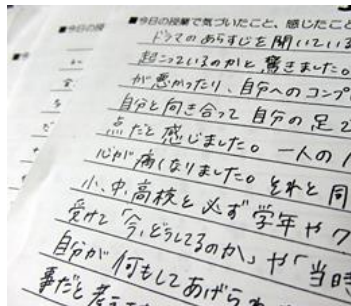 ■今日の授業で気づいたこと、感じたこと
ドラマのあらすじを聞いている
起こっているのかと驚きました。
が悪かったり、自分へのコンプ
自分と向き合って自分の足で
点だと感じました。一人の人
心が痛くなりました。それと同
小、中、高校と必ず学年や
受けて「今、どうしてるのか」や「当時
自分が何もしてあげら
事だと考え
■今日の授